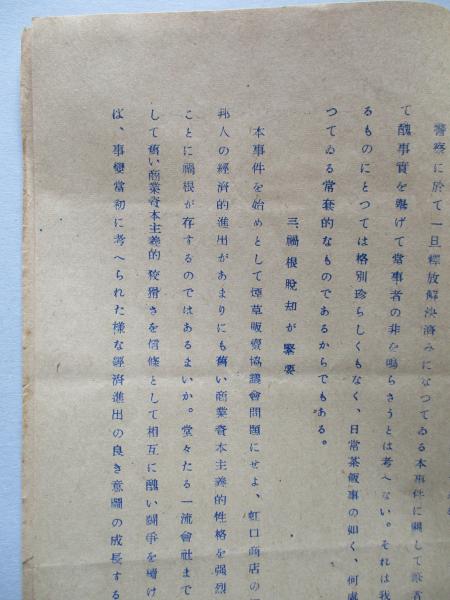 警察に於て一旦釋放解決済みになつてゐる本事件に關して
て醜事實を擧げて當事者の非を鳴らさうとは考へない。それは我
るものにとつては格別珍らしくもなく、日常茶飯事の如く、何處
つてゐる常套的なものであるからでもある。
三、禍根脫却が緊要
本事件を始めとして煙草販賣協議會問題にせよ、虹口商店の
邦人の經濟的進出があまりにも舊い商業資本主義的性格を强烈
ことに禍根が存するのではあるまいか。堂々たる一流會社まで
して舊い商業資本主義的狡猾さを信條として相互に醜い鬪爭を續け
ば、事變當初に考へられた樣な經濟進出の良き意圖の成長する